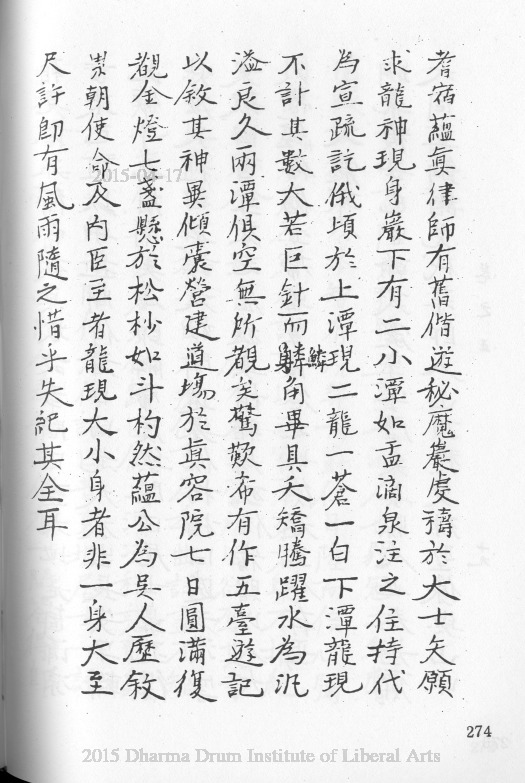 耆宿蘊真律師有舊偕遊秘魔巖虔禱於大士矢願
求龍神現身巖下有二小潭如盂滴泉注之住持代
為宣疏訖俄頃於上潭現二龍一蒼一白下潭龍現
不計其數大若巨針而鱗角畢具夭矯騰躍水為汎
鱗
溢良久兩潭俱空無所覩矣驚歎希有作五臺遊記
以敘其神異傾囊營建道場於真容院七日圓滿復
觀金燈七盞懸於松杪如斗杓然蘊公為吳人歷敘
崇朝使命及內臣至者龍現大小身者非一身大至
尺許即有風雨隨之惜乎失記其全耳
2015-04-17
274
2015 Dharma Drum Institute of Liberal Arts